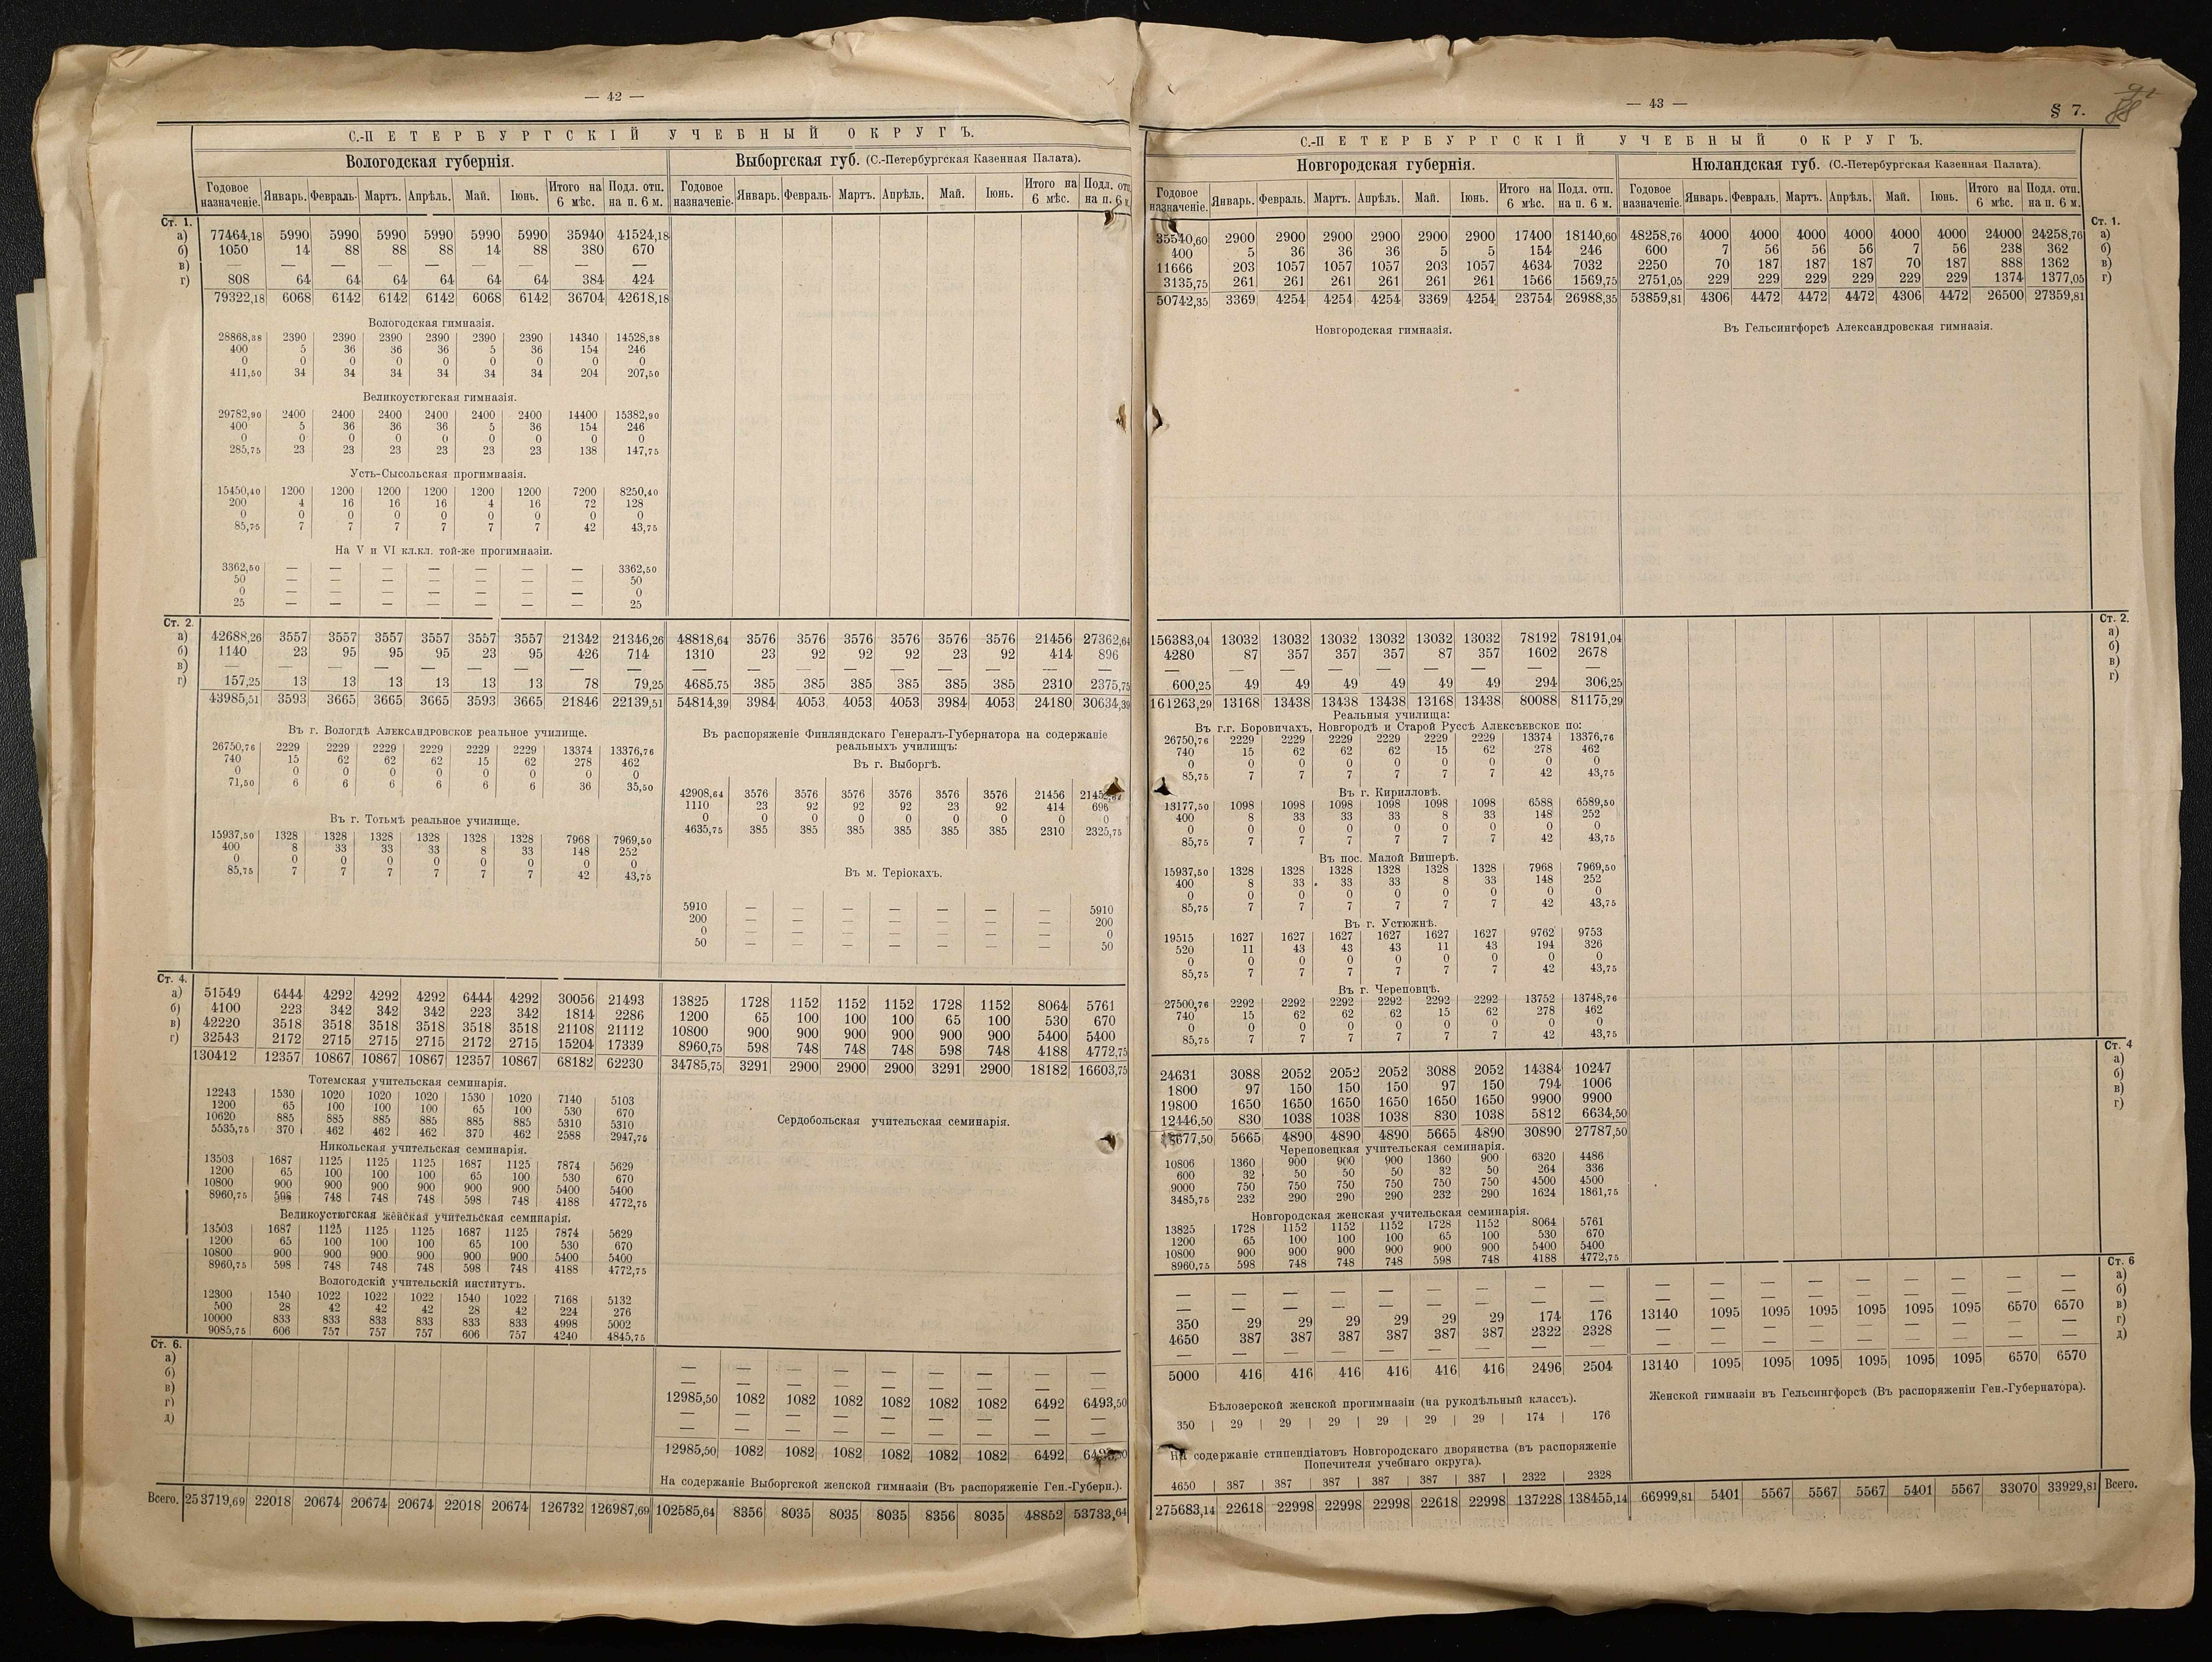 — 42 —
С.-ПЕТЕРБУРГСКІЙ УЧЕБНЫЙ ОКРУГЪ.
Вологодская губернія. Выборгская губ. (С.-Петербургская Казенная Палата).
Годовое назначеніе. Январь. Февраль. Мартъ. Апрѣль. Май. Іюнь. Итого на 6 мѣс. Подл. отп. на п. 6 м. Годовое назначеніе. Январь. Февраль. Мартъ. Апрѣль. Май. Іюнь. Итого на 6 мѣс. Подл. отп. на п. 6 м.
Ст. 1.
а) 77464,18 5990 5990 5990 5990 5990 5990 35940 41524,18
б) 1050 14 88 88 88 14 88 380 670
в) — — — — — — — — —
г) 808 64 64 64 64 64 64 384 424
79322,18 6068 6142 6142 6142 6068 6142 36704 42618,18
Вологодская гимназія.
28868,38 2390 2390 2390 2390 2390 2390 14340 14528,38
400 5 36 36 36 5 36 154 246
0 0 0 0 0 0 0 0 0
411,50 34 34 34 34 34 34 204 207,50
Великоустюгская гимназія.
29782,90 2400 2400 2400 2400 2400 2400 14400 15382,90
400 5 36 36 36 5 36 154 246
0 0 0 0 0 0 0 0 0
285,75 23 23 23 23 23 23 138 147,75
Усть-Сысольская прогимназія.
15450,40 1200 1200 1200 1200 1200 1200 7200 8250,40
200 4 16 16 16 4 16 72 128
0 0 0 0 0 0 0 0 0
85,75 7 7 7 7 7 7 42 43,75
На V и VI кл.кл. той-же прогимназіи.
3362,50 — — — — — — — 3362,50
50 — — — — — — — 50
0 — — — — — — — 0
25 — — — — — — — 25
Ст. 2.
а) 42688,26 3557 3557 3557 3557 3557 3557 21342 21346,26 48818,64 3576 3576 3576 3576 3576 3576 21456 27362,64
б) 1140 23 95 95 95 23 95 426 714 1310 23 92 92 92 23 92 414 896
в) — — — — — — — — — — — — — — — — — —
г) 157,25 13 13 13 13 13 13 78 79,25 4685,75 385 385 385 385 385 385 2310 2375,75
43985,51 3593 3665 3665 3665 3593 3665 21846 22139,51 54814,39 3984 4053 4053 4053 3984 4053 24180 30634,39
Въ г. Вологдѣ Александровское реальное училище.
26750,76 2229 2229 2229 2229 2229 2229 13374 13376,76
740 15 62 62 62 15 62 278 462
0 0 0 0 0 0 0 0 0
71,50 6 6 6 6 6 6 36 35,50
Въ г. Тотьмѣ реальное училище.
15937,50 1328 1328 1328 1328 1328 1328 7968 7969,50
400 8 33 33 33 8 33 148 252
0 0 0 0 0 0 0 0 0
85,75 7 7 7 7 7 7 42 43,75
Въ распоряженіе Финляндскаго Генералъ-Губернатора на содержаніе
реальныхъ училищъ:
Въ г. Выборгѣ.
42908,64 3576 3576 3576 3576 3576 3576 21456
1110 23 92 92 92 23 92 414 696
0 0 0 0 0 0 0 0 0
4635,75 385 385 385 385 385 385 2310 2325,75
Въ м. Теріокахъ.
5910 — — — — — — — 5910
200 — — — — — — — 200
0 — — — — — — — 0
50 — — — — — — — 50
Ст. 4.
а) 51549 6444 4292 4292 4292 6444 4292 30056 21493 13825 1728 1152 1152 1152 1728 1152 8064 5761
б) 4100 223 342 342 342 223 342 1814 2286 1200 65 100 100 100 65 100 530 670
в) 42220 3518 3518 3518 3518 3518 3518 21108 21112 10800 900 900 900 900 900 900 5400 5400
г) 32543 2172 2715 2715 2715 2172 2715 15204 17339 8960,75 598 748 748 748 598 748 4188 4772,75
130412 12357 10867 10867 10867 12357 10867 68182 62230 34785,75 3291 2900 2900 2900 3291 2900 18182 16603,75
Тотемская учительская семинарія.
12243 1530 1020 1020 1020 1530 1020 7140 5103
1200 65 100 100 100 65 100 530 670
10620 885 885 885 885 885 885 5310 5310
5535,75 370 462 462 462 370 462 2588 2947,75
Никольская учительская семинарія.
13503 1687 1125 1125 1125 1687 1125 7874 5629
1200 65 100 100 100 65 100 530 670
10800 900 900 900 900 900 900 5400 5400
8960,75 598 748 748 748 598 748 4188 4772,75
Великоустюгская женская учительская семинарія.
13503 1687 1125 1125 1125 1687 1125 7874 5629
1200 65 100 100 100 65 100 530 670
10800 900 900 900 900 900 900 5400 5400
8960,75 598 748 748 748 598 748 4188 4772,75
Вологодскій учительскій институтъ.
12300 1540 1022 1022 1022 1540 1022 7168 5132
500 28 42 42 42 28 42 224 276
10000 833 833 833 833 833 833 4998 5002
9085,75 606 757 757 757 606 757 4240 4845,75
Сердобольская учительская семинарія.
Ст. 6.
а) — — — — — — — — —
б) — — — — — — — — —
в) 12985,50 1082 1082 1082 1082 1082 1082 6492 6493,50
г) — — — — — — — — —
д) — — — — — — — — —
12985,50 1082 1082 1082 1082 1082 1082 6492 6493,50
На содержаніе Выборгской женской гимназіи (Въ распоряженіе Ген.-Губерн.).
Всего. 253719,69 22018 20674 20674 20674 22018 20674 126732 126987,69 102585,64 8356 8035 8035 8035 8356 8035 48852 53733,64
— 43 —
§ 7.
88
С.-ПЕТЕРБУРГСКІЙ УЧЕБНЫЙ ОКРУГЪ.
Новгородская губернія. Нюландская губ. (С.-Петербургская Казенная Палата).
Годовое назначеніе. Январь. Февраль. Мартъ. Апрѣль. Май. Іюнь. Итого на 6 мѣс. Подл. отп. на п. 6 м. Годовое назначеніе. Январь. Февраль. Мартъ. Апрѣль. Май. Іюнь. Итого на 6 мѣс. Подл. отп. на п. 6 м.
Ст. 1.
35540,60 2900 2900 2900 2900 2900 2900 17400 18140,60 48258,76 4000 4000 4000 4000 4000 4000 24000 24258,76 а)
400 5 36 36 36 5 5 154 246 600 7 56 56 56 7 56 238 362 б)
11666 203 1057 1057 1057 203 1057 4634 7032 2250 70 187 187 187 70 187 888 1362 в)
3135,75 261 261 261 261 261 261 1566 1569,75 2751,05 229 229 229 229 229 229 1374 1377,05 г)
50742,35 3369 4254 4254 4254 3369 4254 23754 26988,35 53859,81 4306 4472 4472 4472 4306 4472 26500 27359,81
Новгородская гимназія. Въ Гельсингфорсѣ Александровская гимназія.
Ст. 2.
156383,04 13032 13032 13032 13032 13032 13032 78192 78191,04 а)
4280 87 357 357 357 87 357 1602 2678 б)
— — — — — — — — — в)
600,25 49 49 49 49 49 49 294 306,25 г)
161263,29 13168 13438 13438 13438 13168 13438 80088 81175,29
Реальныя училища:
Въ г.г. Боровичахъ, Новгородѣ и Старой Руссѣ Алексѣевское по:
26750,76 2229 2229 2229 2229 2229 2229 13374 13376,76
740 15 62 62 62 15 62 278 462
0 0 0 0 0 0 0 0 0
85,75 7 7 7 7 7 7 42 43,75
Въ г. Кирилловѣ.
13177,50 1098 1098 1098 1098 1098 1098 6588 6589,50
400 8 33 33 33 8 33 148 252
0 0 0 0 0 0 0 0 0
85,75 7 7 7 7 7 7 42 43,75
Въ пос. Малой Вишерѣ.
15937,50 1328 1328 1328 1328 1328 1328 7968 7969,50
400 8 33 33 33 8 33 148 252
0 0 0 0 0 0 0 0 0
85,75 7 7 7 7 7 7 42 43,75
Въ г. Устюжнѣ.
19515 1627 1627 1627 1627 1627 1627 9762 9753
520 11 43 43 43 11 43 194 326
0 0 0 0 0 0 0 0 0
85,75 7 7 7 7 7 7 42 43,75
Въ г. Череповцѣ.
27500,76 2292 2292 2292 2292 2292 2292 13752 13748,76
740 15 62 62 62 15 62 278 462
0 0 0 0 0 0 0 0 0
85,75 7 7 7 7 7 7 42 43,75
Ст. 4
24631 3088 2052 2052 2052 3088 2052 14384 10247 а)
1800 97 150 150 150 97 150 794 1006 б)
19800 1650 1650 1650 1650 1650 1650 9900 9900 в)
12446,50 830 1038 1038 1038 830 1038 5812 6634,50 г)
8677,50 5665 4890 4890 4890 5665 4890 30890 27787,50
Череповецкая учительская семинарія.
10806 1360 900 900 900 1360 900 6320 4486
600 32 50 50 50 32 50 264 336
9000 750 750 750 750 750 750 4500 4500
3485,75 232 290 290 290 232 290 1624 1861,75
Новгородская женская учительская семинарія.
13825 1728 1152 1152 1152 1728 1152 8064 5761
1200 65 100 100 100 65 100 530 670
10800 900 900 900 900 900 900 5400 5400
8960,75 598 748 748 748 598 748 4188 4772,75
Ст. 6
— — — — — — — — — — — — — — — — — — а)
— — — — — — — — — — — — — — — — — — б)
350 29 29 29 29 29 29 174 176 13140 1095 1095 1095 1095 1095 1095 6570 6570 в)
4650 387 387 387 387 387 387 2322 2328 — — — — — — — — — г)
— — — — — — — — — — — — — — — — — — д)
5000 416 416 416 416 416 416 2496 2504 13140 1095 1095 1095 1095 1095 1095 6570 6570
Бѣлозерской женской прогимназіи (на рукодѣльный классъ).
350 29 29 29 29 29 29 174 176
На содержаніе стипендіатовъ Новгородскаго дворянства (въ распоряженіе
Попечителя учебнаго округа).
4650 387 387 387 387 387 387 2322 2328
Женской гимназіи въ Гельсингфорсѣ (Въ распоряженіи Ген.-Губернатора).
275683,14 22618 22998 22998 22998 22618 22998 137228 138455,14 66999,81 5401 5567 5567 5567 5401 5567 33070 33929,81 Всего.